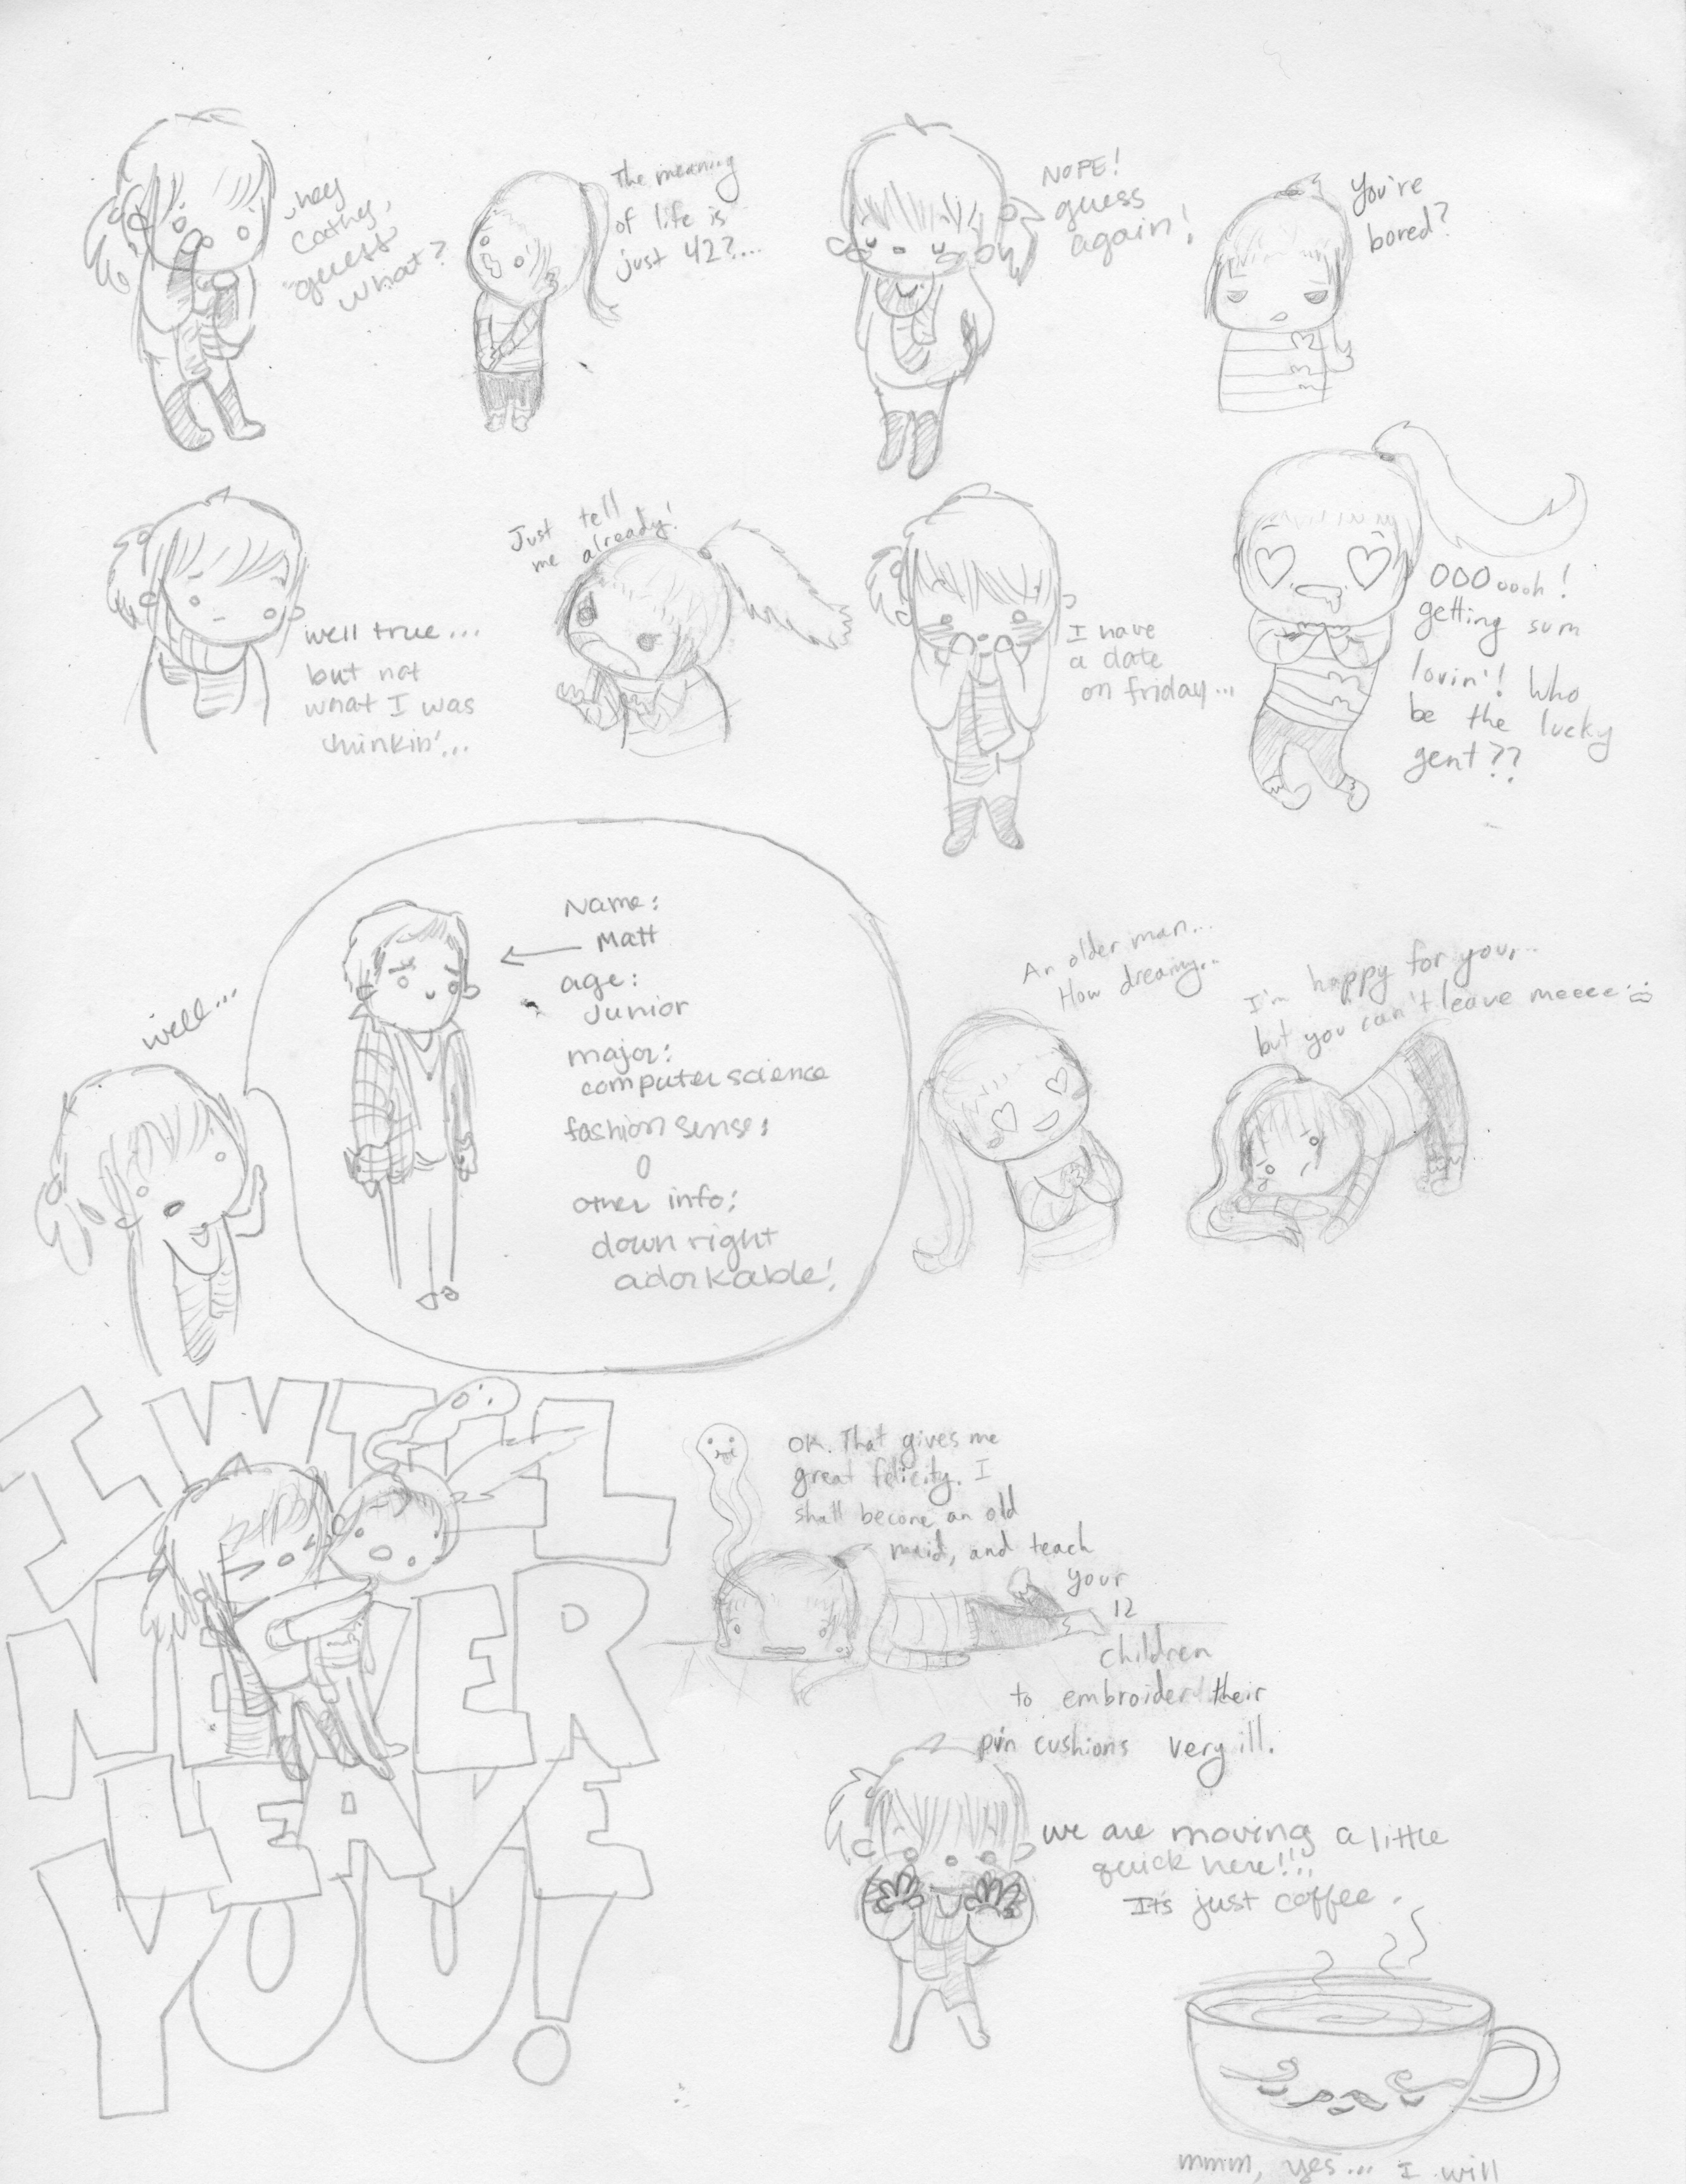 hey
Cathy,
guess
what?
The meaning
of life is
just 42?...
NOPE!
guess
again!
You're
bored?
well true...
but not
what I was
thinkin'...
Just tell
me already!
I have
a date
on friday...
OOOoooh!
getting sum
lovin'! Who
be the lucky
gent??
well...
Name:
Matt
age:
Junior
major:
computer science
fashion sense:
0
other info:
down right
adorkable!
An older man...
How dreamy...
I'm happy for you,...
but you can't leave meeee
I WILL
NEVER
LEAVE
YOU!
OK. That gives me
great felicity. I
shall become an old
maid, and teach
your
12
children
to embroider their
pin cushions very ill.
we are moving a little
quick here!!!
It's just coffee.
mmm, yes... I will